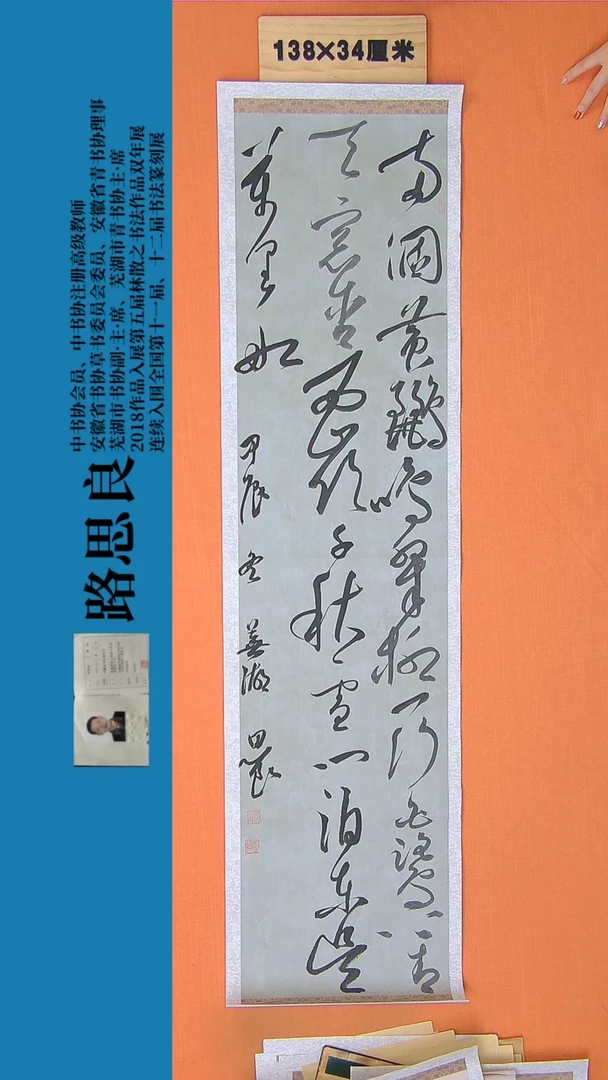 138×34厘米
两個黄鸝鳴翠柳一行白鷺上青
天窗含西嶺千秋雪门泊东吴
萬里船 甲辰冬 蕪湖 思良
路思良
中书协会员、中书协注册高级教师
安徽省书协草书委员会委员、安徽省青书协理事
芜湖市书协副·主·席、芜湖市青书协主·席
2018作品入展第五届林散之书法作品双年展
连续入围全国第十一届、十二届书法篆刻展